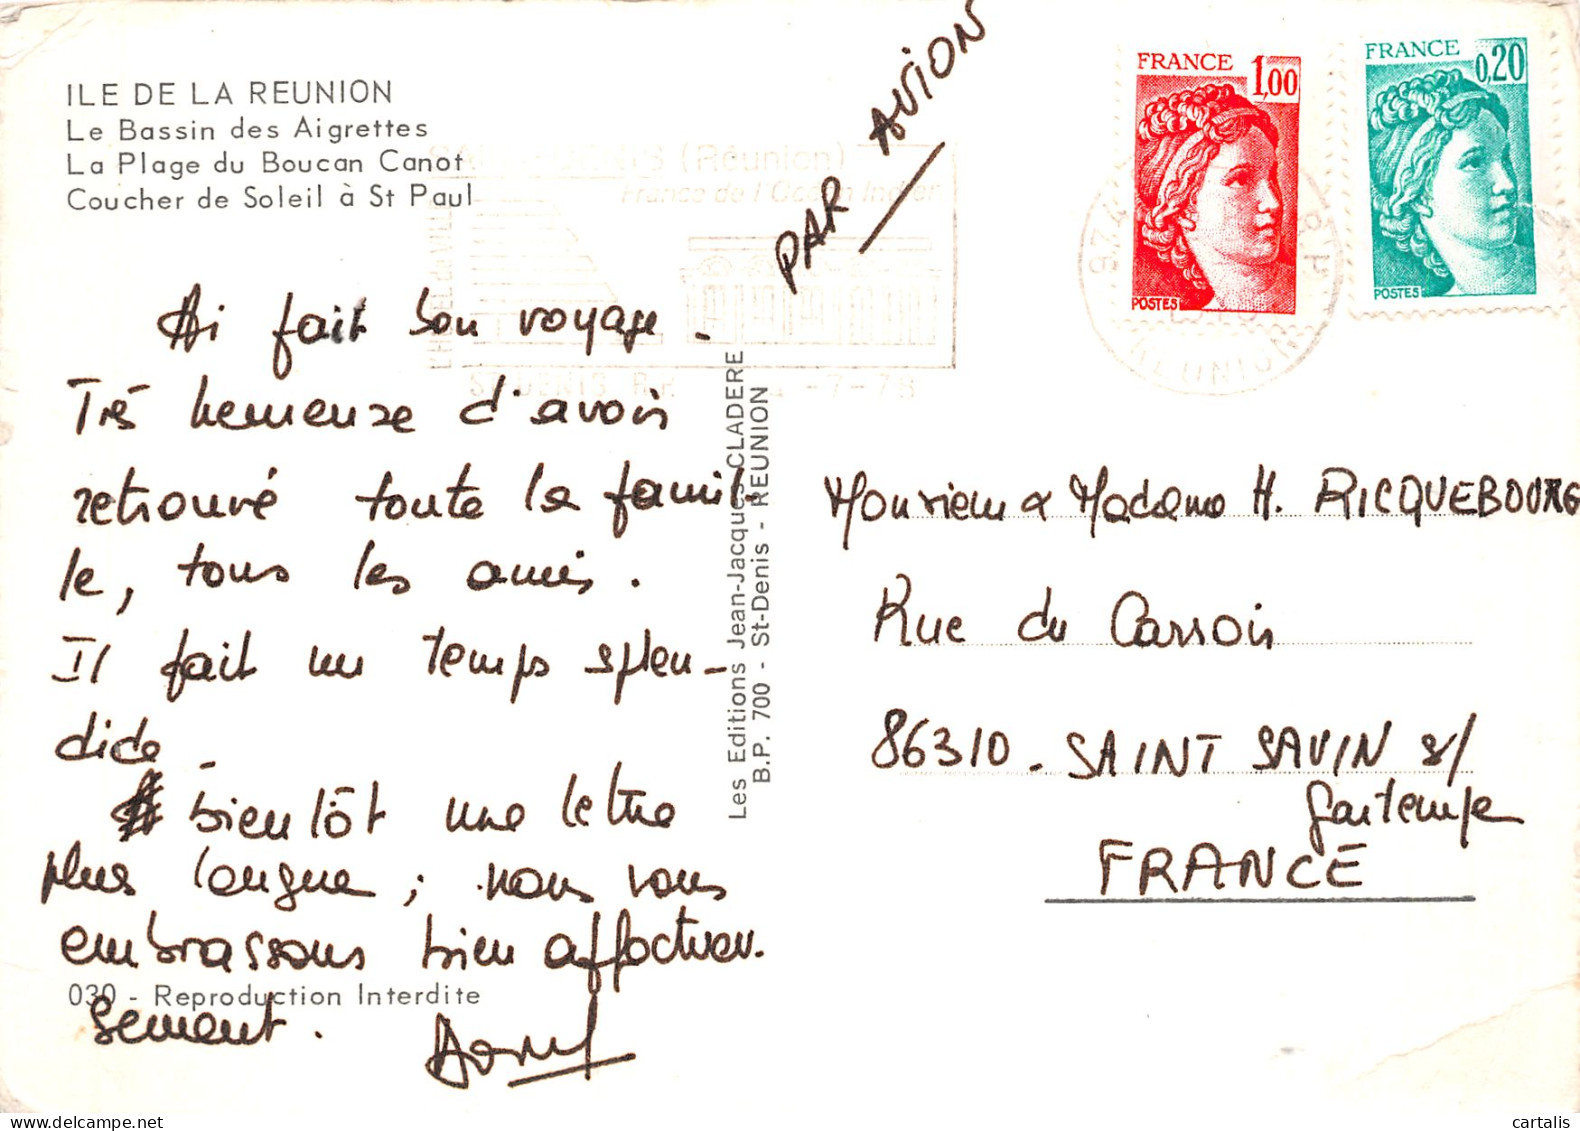 ILE DE LA REUNION
Le Bassin des Aigrettes
La Plage du Boucan Canot
Coucher de Soleil à St Paul
PAR AVION
FRANCE 1,00
POSTES
FRANCE 0,20
POSTES
(Réunion)
France de l'Océan Indien
ST DENIS R.P.
-7-78
974
R.P
REUNION
Ai fait bon voyage -
Très heureuse d'avoir
retrouvé toute la famil-
le, tous les amis.
Il fait un temps splen-
dide -
A bientôt une lettre
plus longue ; nous vous
embrassons bien affectueu-
sement.
Les Editions Jean-Jacques CLADERE
B.P. 700 - St-Denis - REUNION
Monsieur & Madame H. RICQUEBOURG
Rue du
86310 - SAINT SAVIN s/
Gartempe
FRANCE
030 - Reproduction Interdite
cartalis